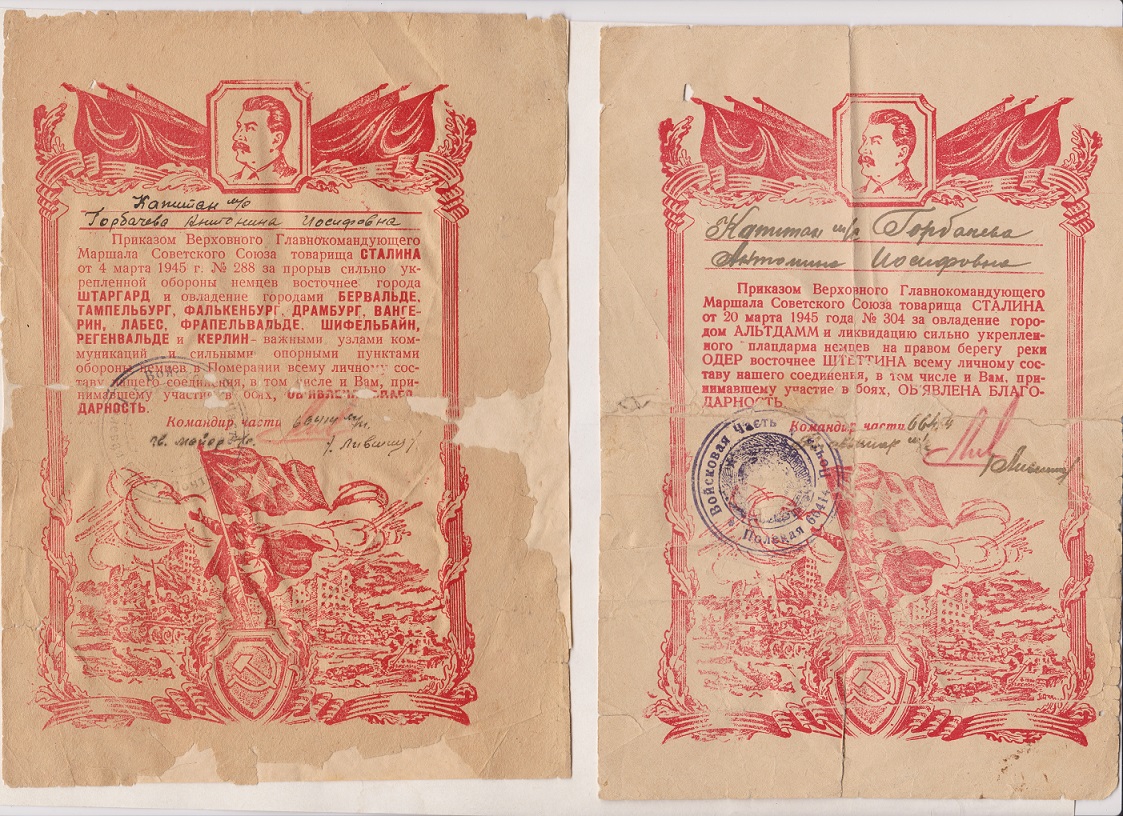 Капитан м/с
Горбачева Антонина Иосифовна
Приказом Верховного Главнокомандующего
Маршала Советского Союза товарища СТАЛИНА
от 4 марта 1945 г. № 288 за прорыв сильно ук-
репленной обороны немцев восточнее города
ШТАРГАРД и овладение городами БЕРВАЛЬДЕ,
ТАМПЕЛЬБУРГ, ФАЛЬКЕНБУРГ, ДРАМБУРГ, ВАНГЕ-
РИН, ЛАБЕС, ФРАПЕЛЬВАЛЬДЕ, ШИФЕЛЬБАЙН,
РЕГЕНВАЛЬДЕ и КЕРЛИН- важными, узлами ком-
муникаций и сильными опорными пунктами
обороны немцев в Померании всему личному сос-
таву нашего соединения, в том числе и Вам, при-
нимавшему участие в боях, ОБ'ЯВЛЕНА БЛАГО-
ДАРНОСТЬ.
Командир части
гв. майор м/с
/Лившиц/
Капитан м/с Горбачева
Антонина Иосифовна
Приказом Верховного Главнокомандующего
Маршала Советского Союза товарища СТАЛИНА
от 20 марта 1945 года № 304 за овладение горо-
дом АЛЬТДАММ и ликвидацию сильно укреплен-
ного плацдарма немцев на правом берегу реки
ОДЕР восточнее ШТЕТТИНА всему личному сос-
таву нашего соединения, в том числе и Вам, при-
нимавшему участие в боях, ОБ'ЯВЛЕНА БЛАГО-
ДАРНОСТЬ.
Командир части
/Лившиц/
Войсковая Часть
Полевая